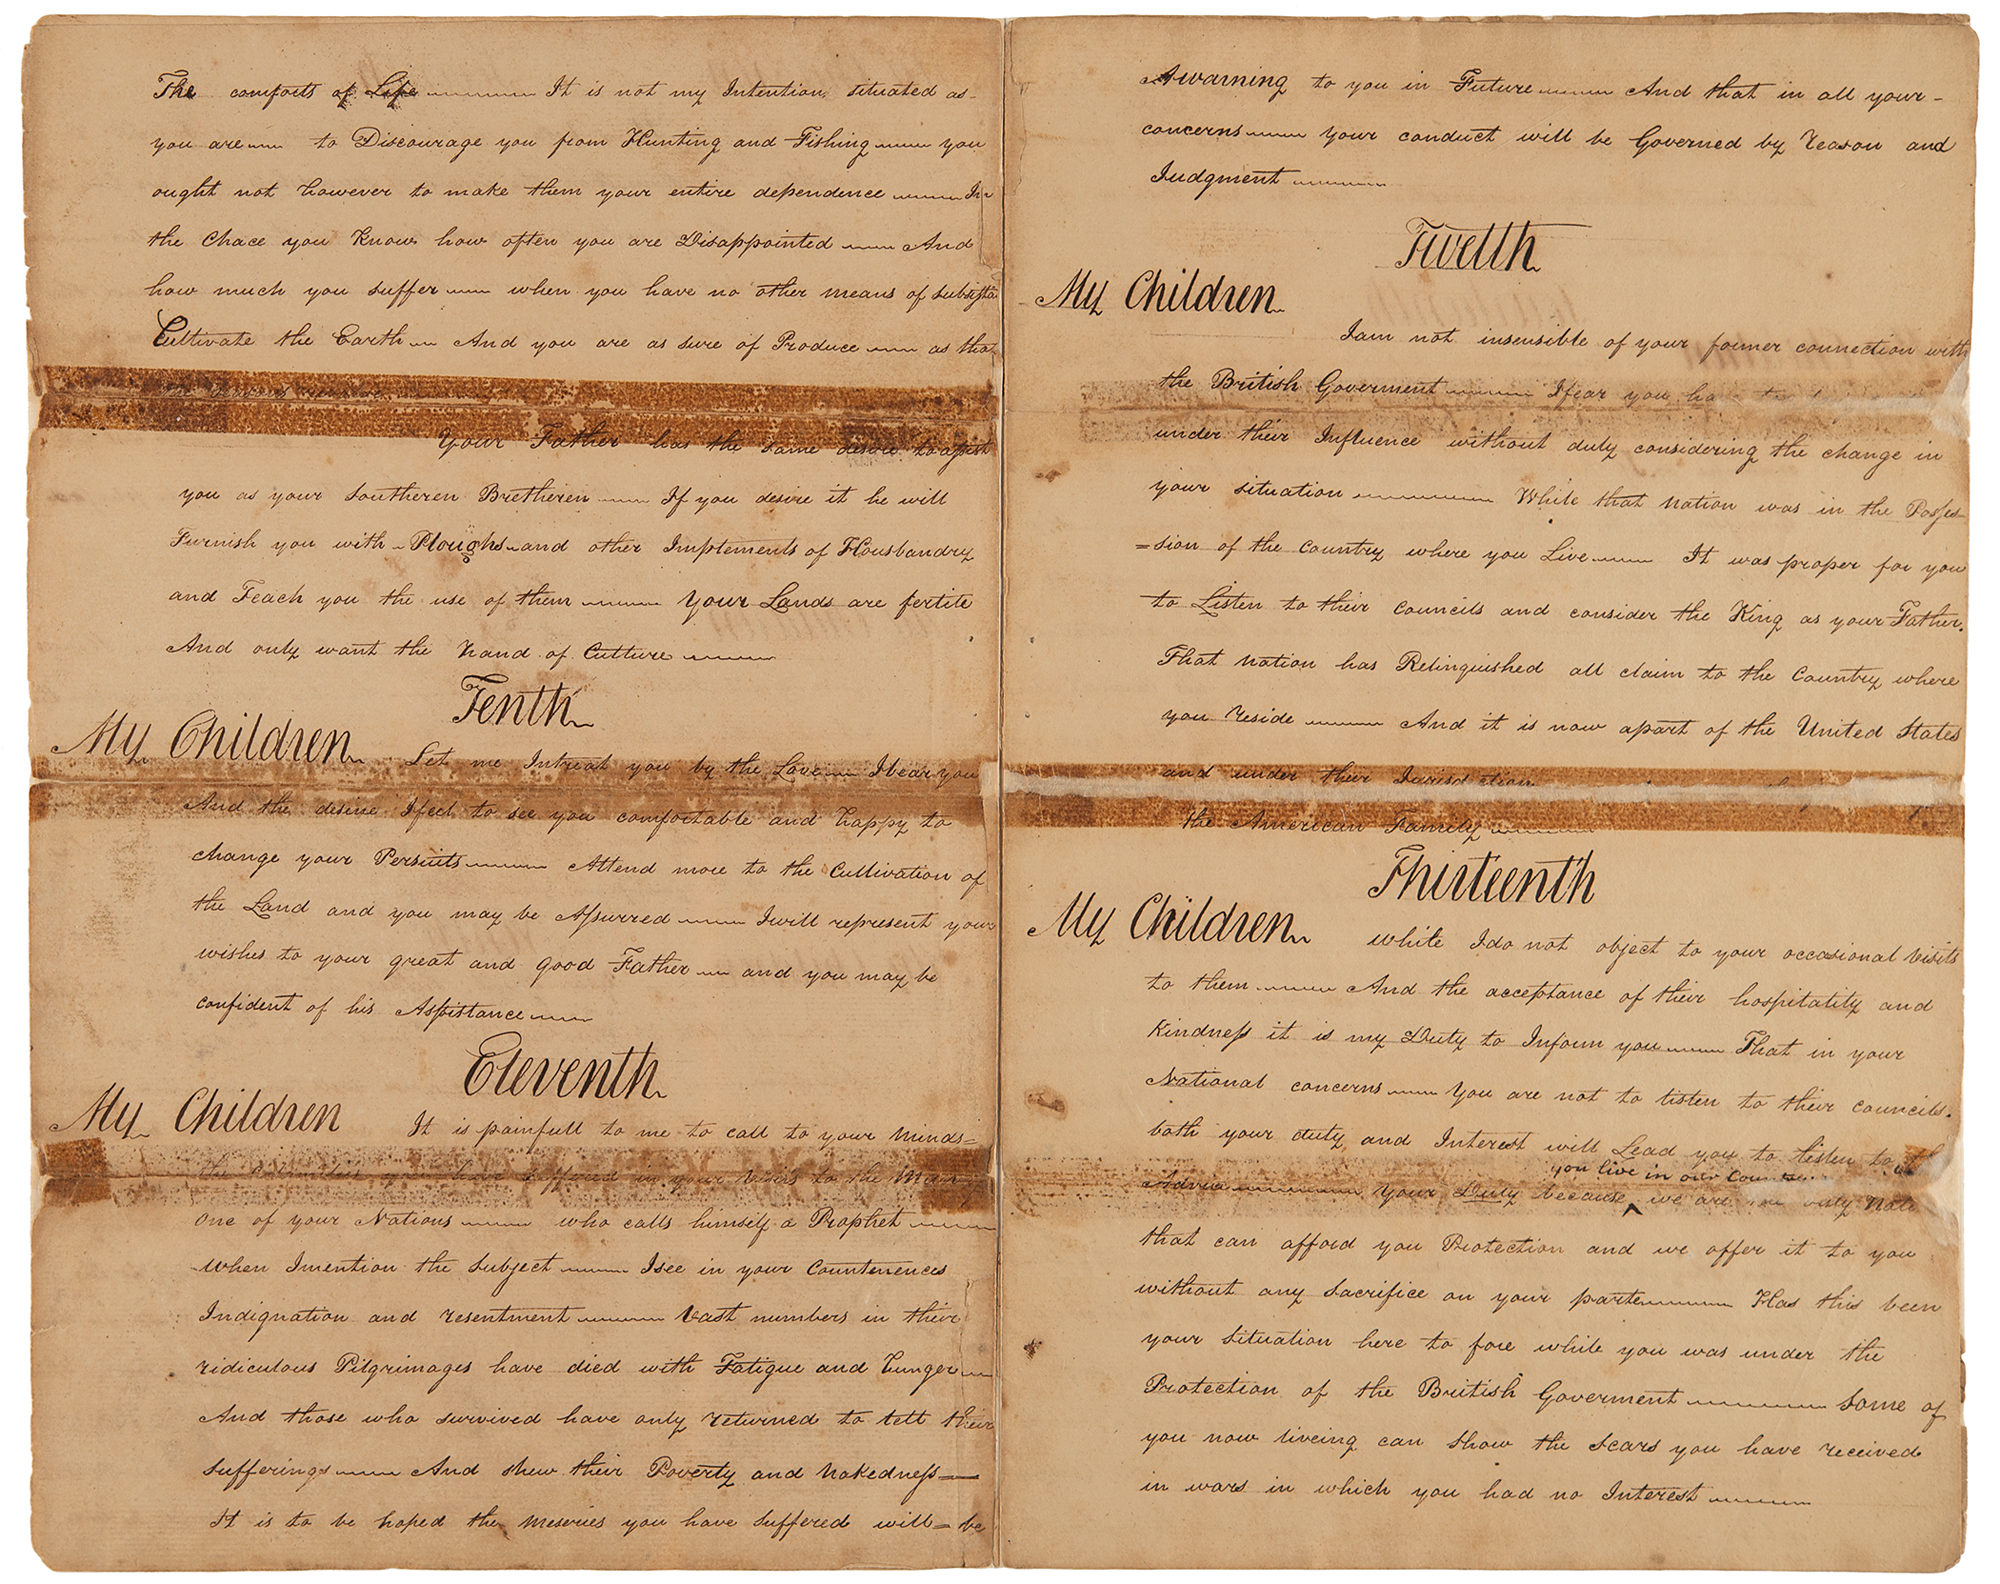 The comforts of Life It is not my Intention situated as
you are to Discourage you from Hunting and Fishing you
ought not however to make them your entire dependence In
the Chace you Know how often you are Disappointed And
how much you suffer when you have no other means of subsista
Cultivate the Earth And you are as sure of Produce as that
the Seasons
Your Father has the same desire to assist
you as your Southeren Bretheren If you desire it he will
Furnish you with Ploughs and other Implements of Housbandry
and Teach you the use of them Your Lands are fertile
And only want the hand of Culture
Tenth
My Children Let me Intreat you by the Love I bear you
And the desire I feel to see you comfortable and happy to
change your Persuits Attend more to the Cultivation of
the Land and you may be Assurred I will represent your
wishes to your great and good Father and you may be
confident of his Assistance
Eleventh
My Children It is painfull to me to call to your Minds
the you have suffered in your Visits to the Man
one of your Nations who calls himself a Prophet
When I mention the subject I see in your Countenences
Indignation and resentment Vast numbers in their
ridiculous Pilgrimages have died with Fatigue and hunger
And those who survived have only returned to tell their
sufferings And shew their Poverty and Nakedness
It is to be hoped the Meseries you have suffered will = be
A warning to you in Future And that in all your
concerns your conduct will be Governed by reason and
Judgment
Twelth
My Children
I am not insensible of your former connection with
the British Goverment I fear you ha
under their Influence without duly considering the change in
your situation While that Nation was in the Posses
=sion of the Country where you Live It was proper for you
to Listen to their Councils and consider the King as your Father.
That Nation has Relinquished all claim to the Country where
you reside And it is now a part of the United States
and under their Jurisdiction
the American Family
Thirteenth
My Children while I do not object to your occasional Visits
to them And the acceptance of their hospitality and
Kindness it is my Duty to Inform you That in your
National concerns you are not to listen to their councils.
both your duty and Interest will Lead you to listen to
you live in our
Advice Your Duty because ^ we are only
that can afford you Protection and we offer it to you
without any sacrifice on your parte Has this been
your situation here to fore while you was under the
Protection of the British Goverment Some of
you now liveing can show the scars you have received
in wars in which you had no Interest